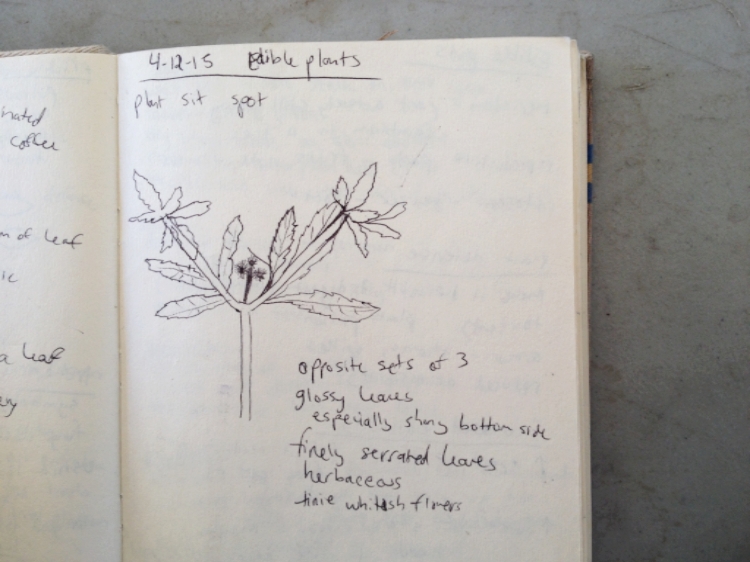 nated
coffee
n of leaf
ic
a leaf
4-12-15 Edible plants
plant sit spot
opposite sets of 3
glossy leaves
especially shiny bottom side
finely serrated leaves
herbaceous
tinie whitish flowers